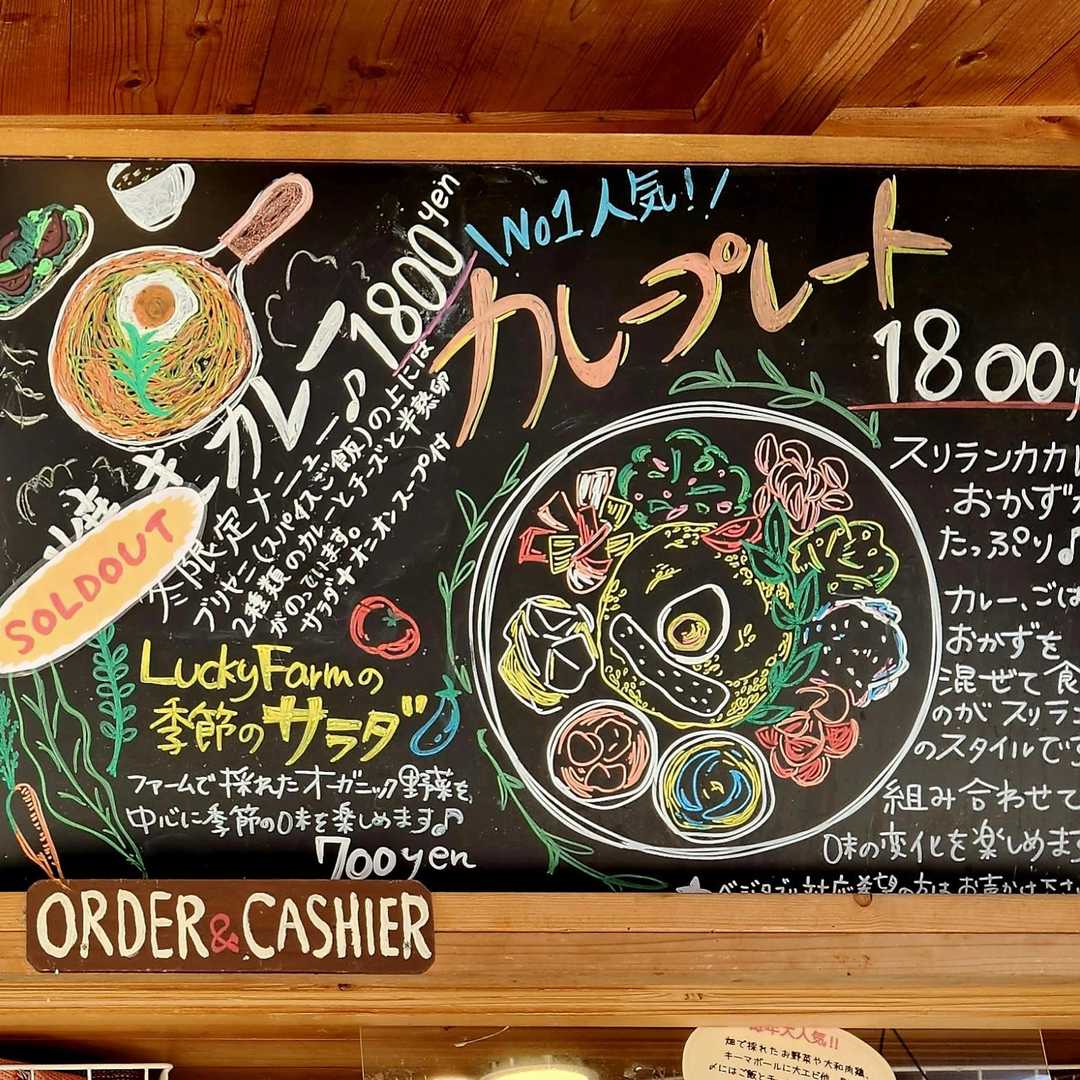 焼きカレー 1800yen
SOLDOUT
冬限定メニュー♪
ブリヤニ(スパイスご飯)の上には
2種類のカレーとチーズと半熟卵
がのっています。
サラダ+オニオンスープ付
LuckyFarmの
季節のサラダ
ファームで採れたオーガニック野菜を
中心に季節の味を楽しめます♪
700yen
No1人気!!
カレープレート
1800y
スリランカカレ
おかずが
たっぷり♪
カレー、ごは
おかずを
混ぜて食
のがスリラン
のスタイルです
組み合わせて
味の変化を楽しめます
★ベジタブル対応希望の方はお声かけ下さ
ORDER & CASHIER
毎年大人気!!
畑で採れたお野菜や大和肉鶏、
キーマボールに大エビ他
〆にはご飯とチー